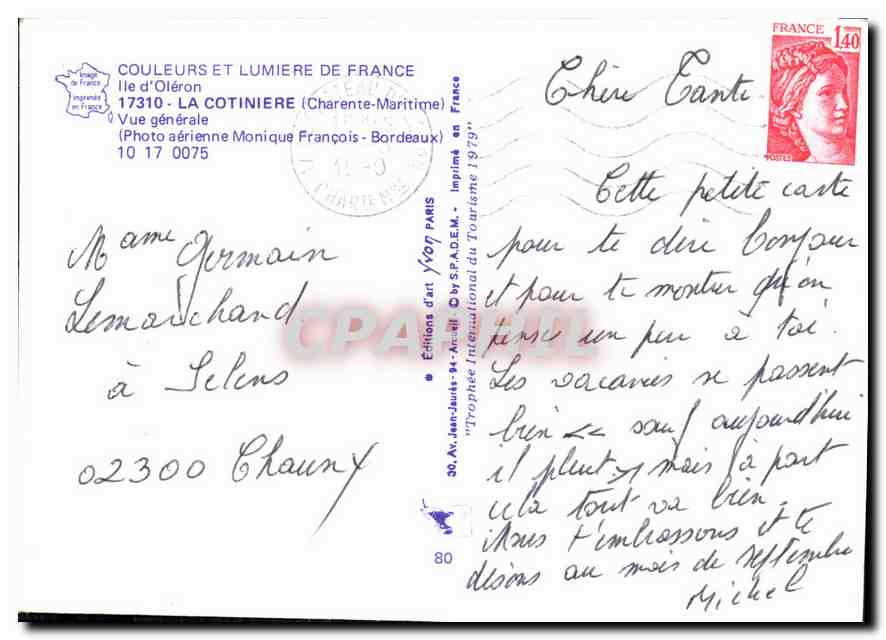 COULEURS ET LUMIERE DE FRANCE
Ile d'Oléron
17310 - LA COTINIERE (Charente-Maritime)
Vue générale
(Photo aérienne Monique François - Bordeaux)
10 17 0075
Image de France
imprimée en France
FRANCE 1,40
POSTES
Mame Germain
Lemarchand
à Selens
02300 Chauny
● Editions d'art Yvon PARIS
30, Av. Jean-Jaurès - 94 - Arcueil © by S.P.A.D.E.M. - Imprimé en France
"Trophée International du Tourisme 1979"
80
CPARAMA
Chère Tante
Cette petite carte
pour te dire bonjour
et pour te montrer qu'on
pense un peu à toi.
Les vacances se passent
bien << sauf aujourd'hui
il pleut >> mais à part
cela tout va bien.
Nous t'embrassons et te
disons au mois de septembre
Michel